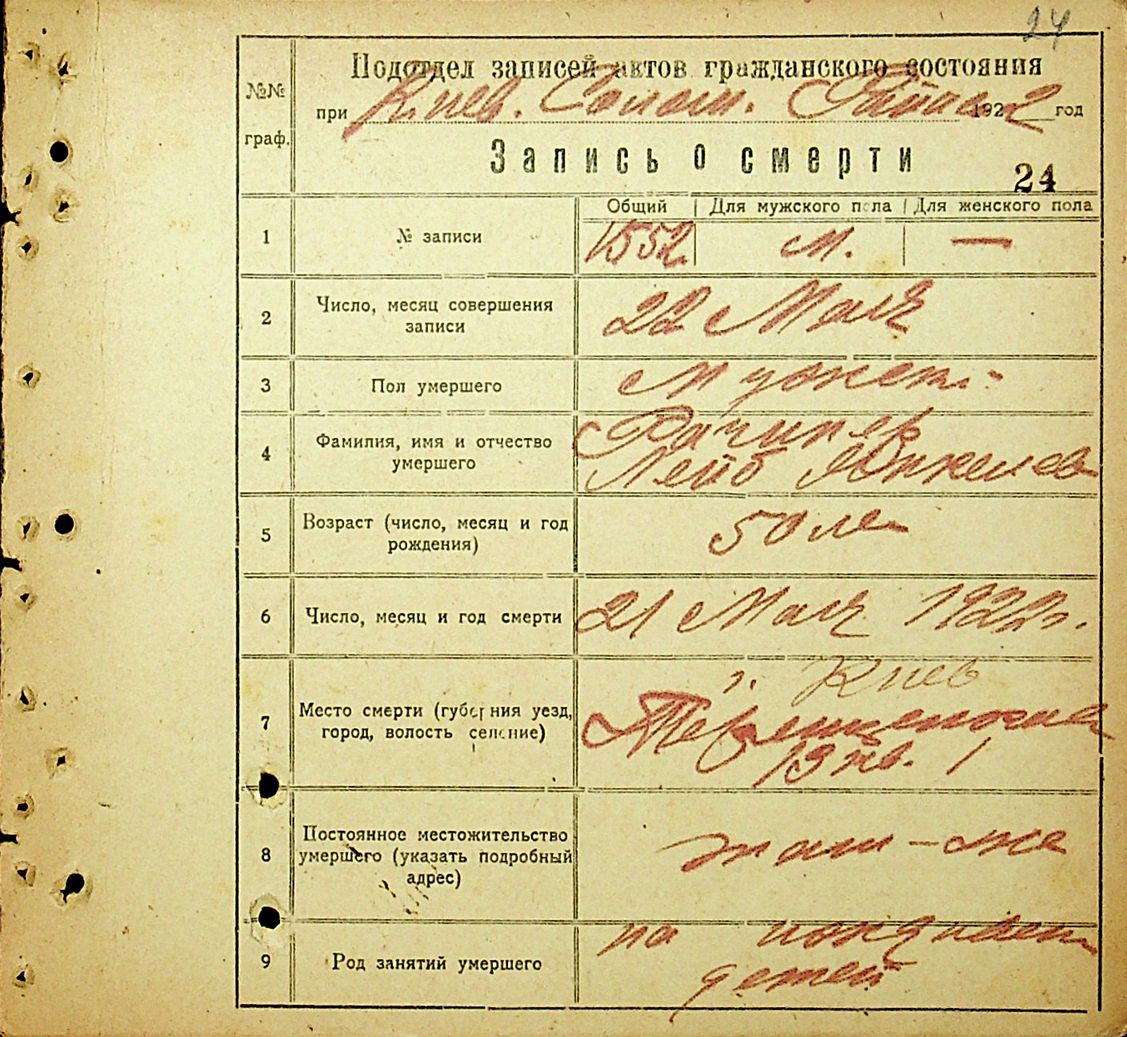 24
Подотдел записей актов гражданского состояния
№№ граф.
при Киев. Солом. Районе 1922 год
Запись о смерти
24
Общий | Для мужского пола | Для женского пола
1 № записи 1552 м. —
2 Число, месяц совершения
записи
22 Мая
3 Пол умершего
4 Фамилия, имя и отчество
умершего
Рачинер
Лейб Янкелев
5 Возраст (число, месяц и год
рождения)
50 ле
6 Число, месяц и год смерти 21 Мая 1922г.
7 Место смерти (губерния уезд,
город, волость селение)
г. Киев
19 кв. 1
8 Постоянное местожительство
умершего (указать подробный
адрес)
там-же
9 Род занятий умершего
на
детей